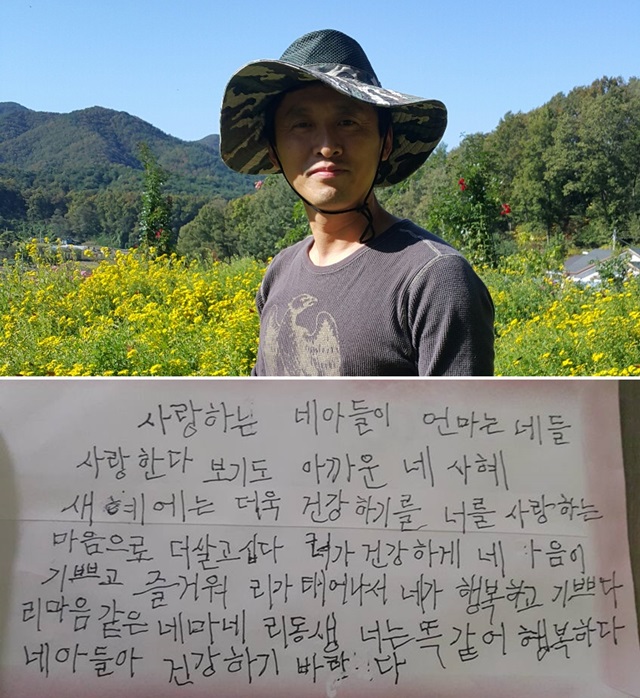 사랑하는 네아들이 언마는 네들
사랑한다 보기도 아까운 네 사혜
새혜에는 더욱 건강하기를 너를 사랑하는
마음으로 더살고십다 건강하게 네 음이
기쁘고 즐거워 리가 태어나서 네가 행복하고 기쁘다
리마음 같은 네마네 리동생 너는 똑같어 행복하다
네아들아 건강하기 바란 다